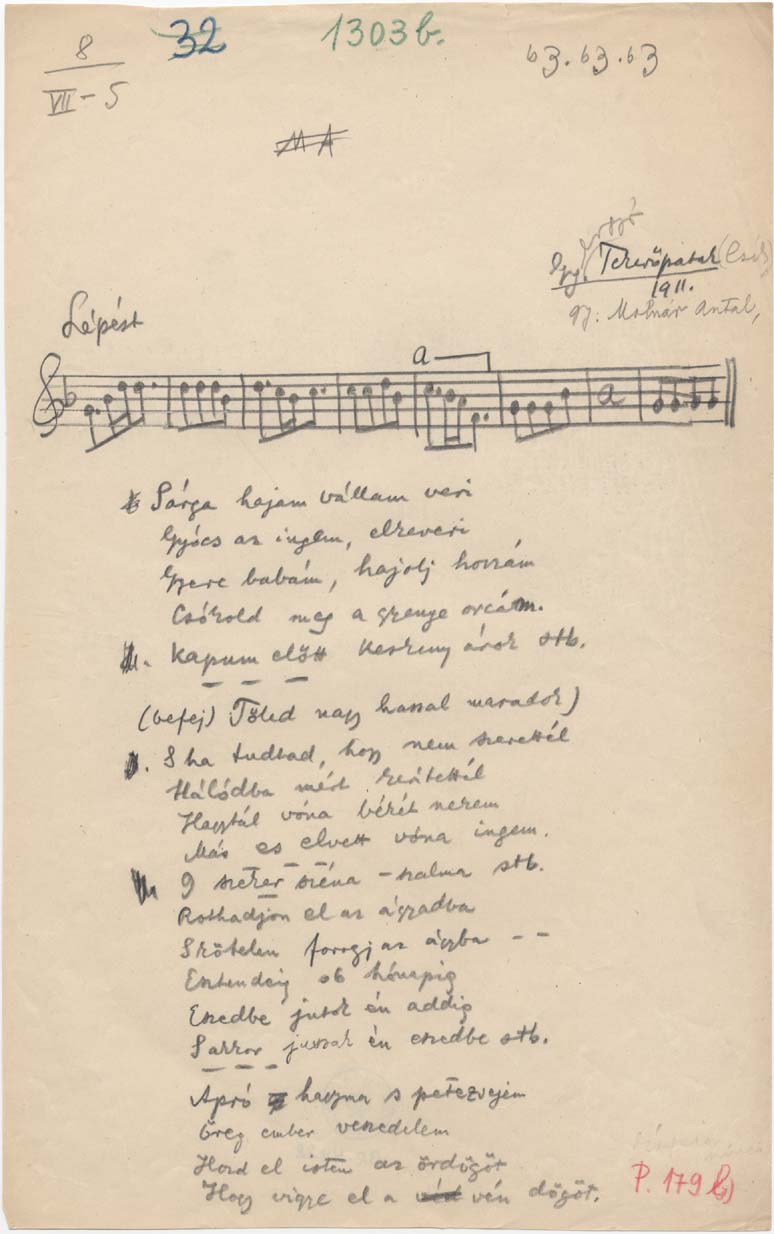 8
VII-5
32
1303b.
b3. b3. b3
MA
Tekerőpatak (Csík)
1911.
gy: Molnár Antal,
Lépést
a
a
Sárga hajam vállam veri
Gyócs az ingem, elzeveri
Gyere babám, hajolj hozzám
Csókold meg a gyenge orcám.
Kapum előtt keskeny árok stb.
(befej) Tőled nagy hassal maradok)
S ha tudtad, hogy nem szerettél
Hálódba mért kerítettél
Hagytál vóna békét nekem
Más es elvett vóna ingem.
9 szekér széna - szalma stb.
Rothadjon el az ágyadba
Szőtelen forogj az ágyba --
Esztendeig s 6 hónapig
Eszedbe jutok én addig
Sakkor jusszak én eszedbe stb.
Apró hagyma s petezsejem
Öreg ember veszedelem
Hord el isten az ördögöt
Hogy vigye el a vén dögöt.
P. 179 b)